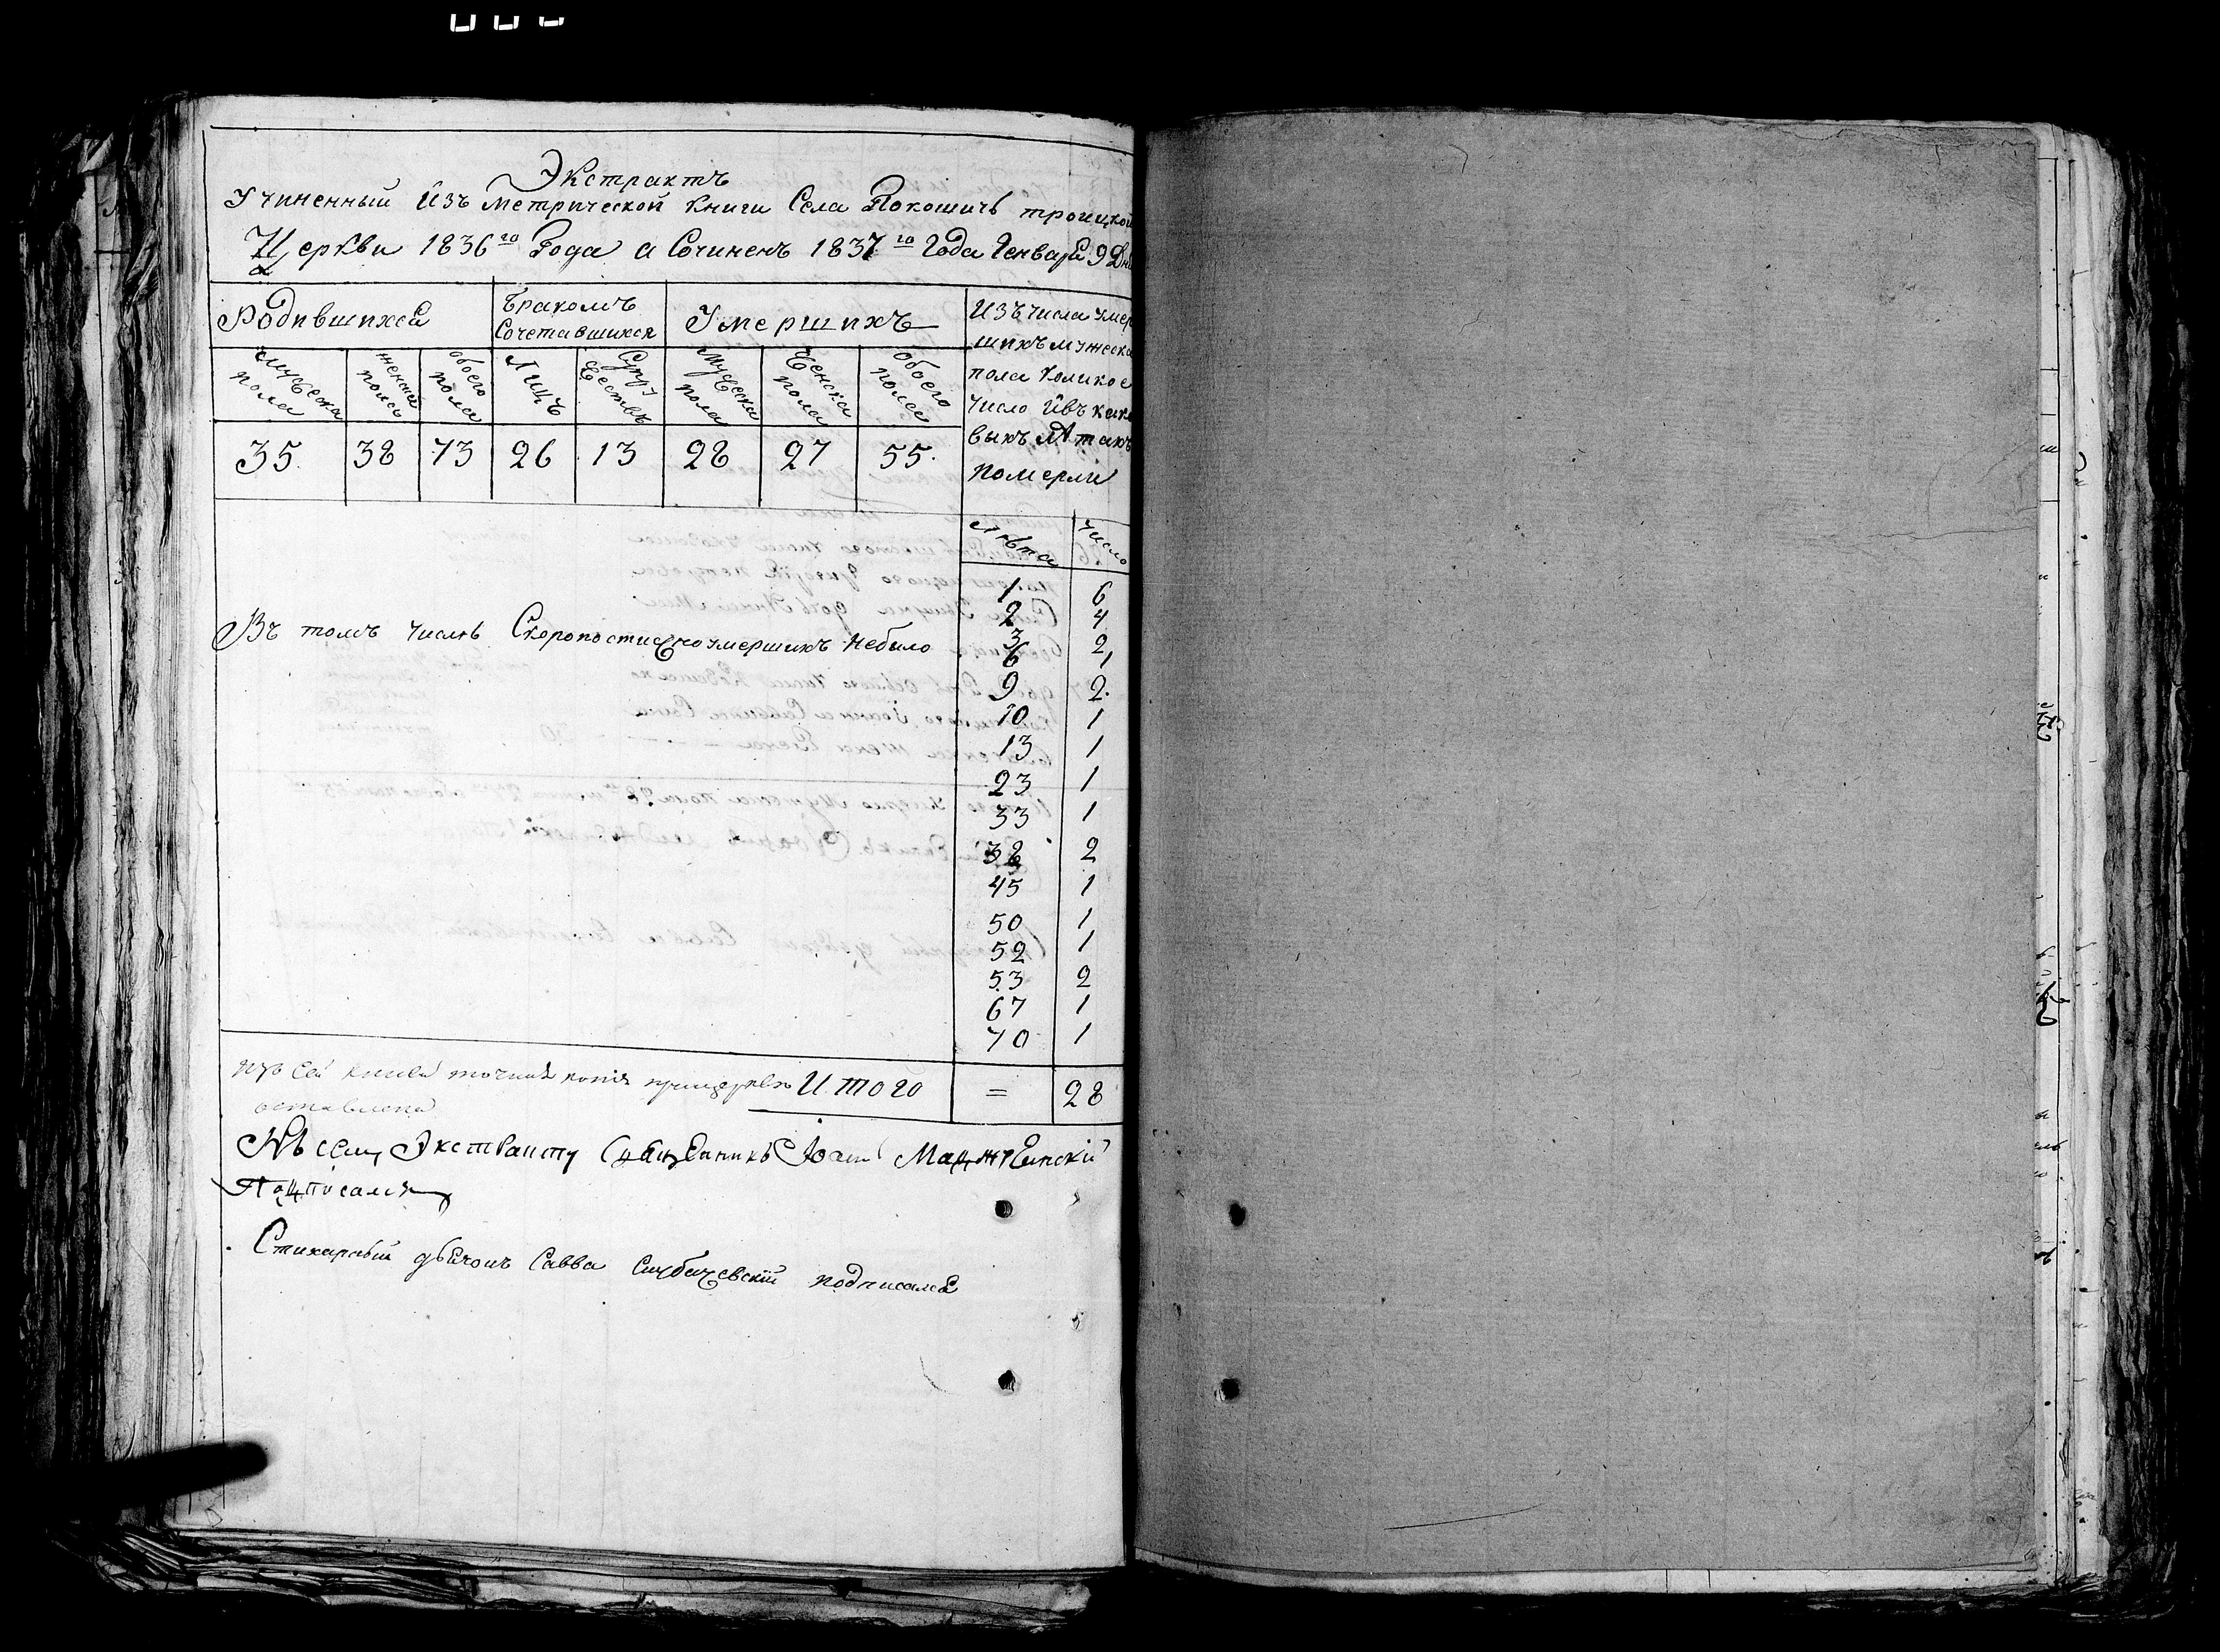 Экстрактъ
Учиненный изъ Метрической книги Села Покошичь троицкой
Церкви 1836го Года а Сочиненъ 1837го Года Генваря 9 Дня
Родившихся
Бракомъ
Сочетавшихся
Умершихъ
Изъ числа умер
шихъ мужеска
пола коликое
число и въ како
выхъ лѣтахъ
померли
мужеска
пола
женска
пола
обоего
пола
Лицъ
Супру
жествъ
Мужеска
пола
Женска
пола
обоего
пола
35. 38 73 26 13 28 27 55.
Лѣта Число
1 6
2 4
3 2
6 1
9 2.
10 1
13 1
23 1
33 1
38 2
45 1
50 1
52 1
53 2
67 1
70 1
Въ томъ числѣ Скоропостижно умершихъ небило
изъ сей книги точная копія прицерквѣ
оставлена
Итого = 28
Къ сему Экстракту Священникъ Іоанъ
Подписался
Стихарный дьячокъ Савва подписался